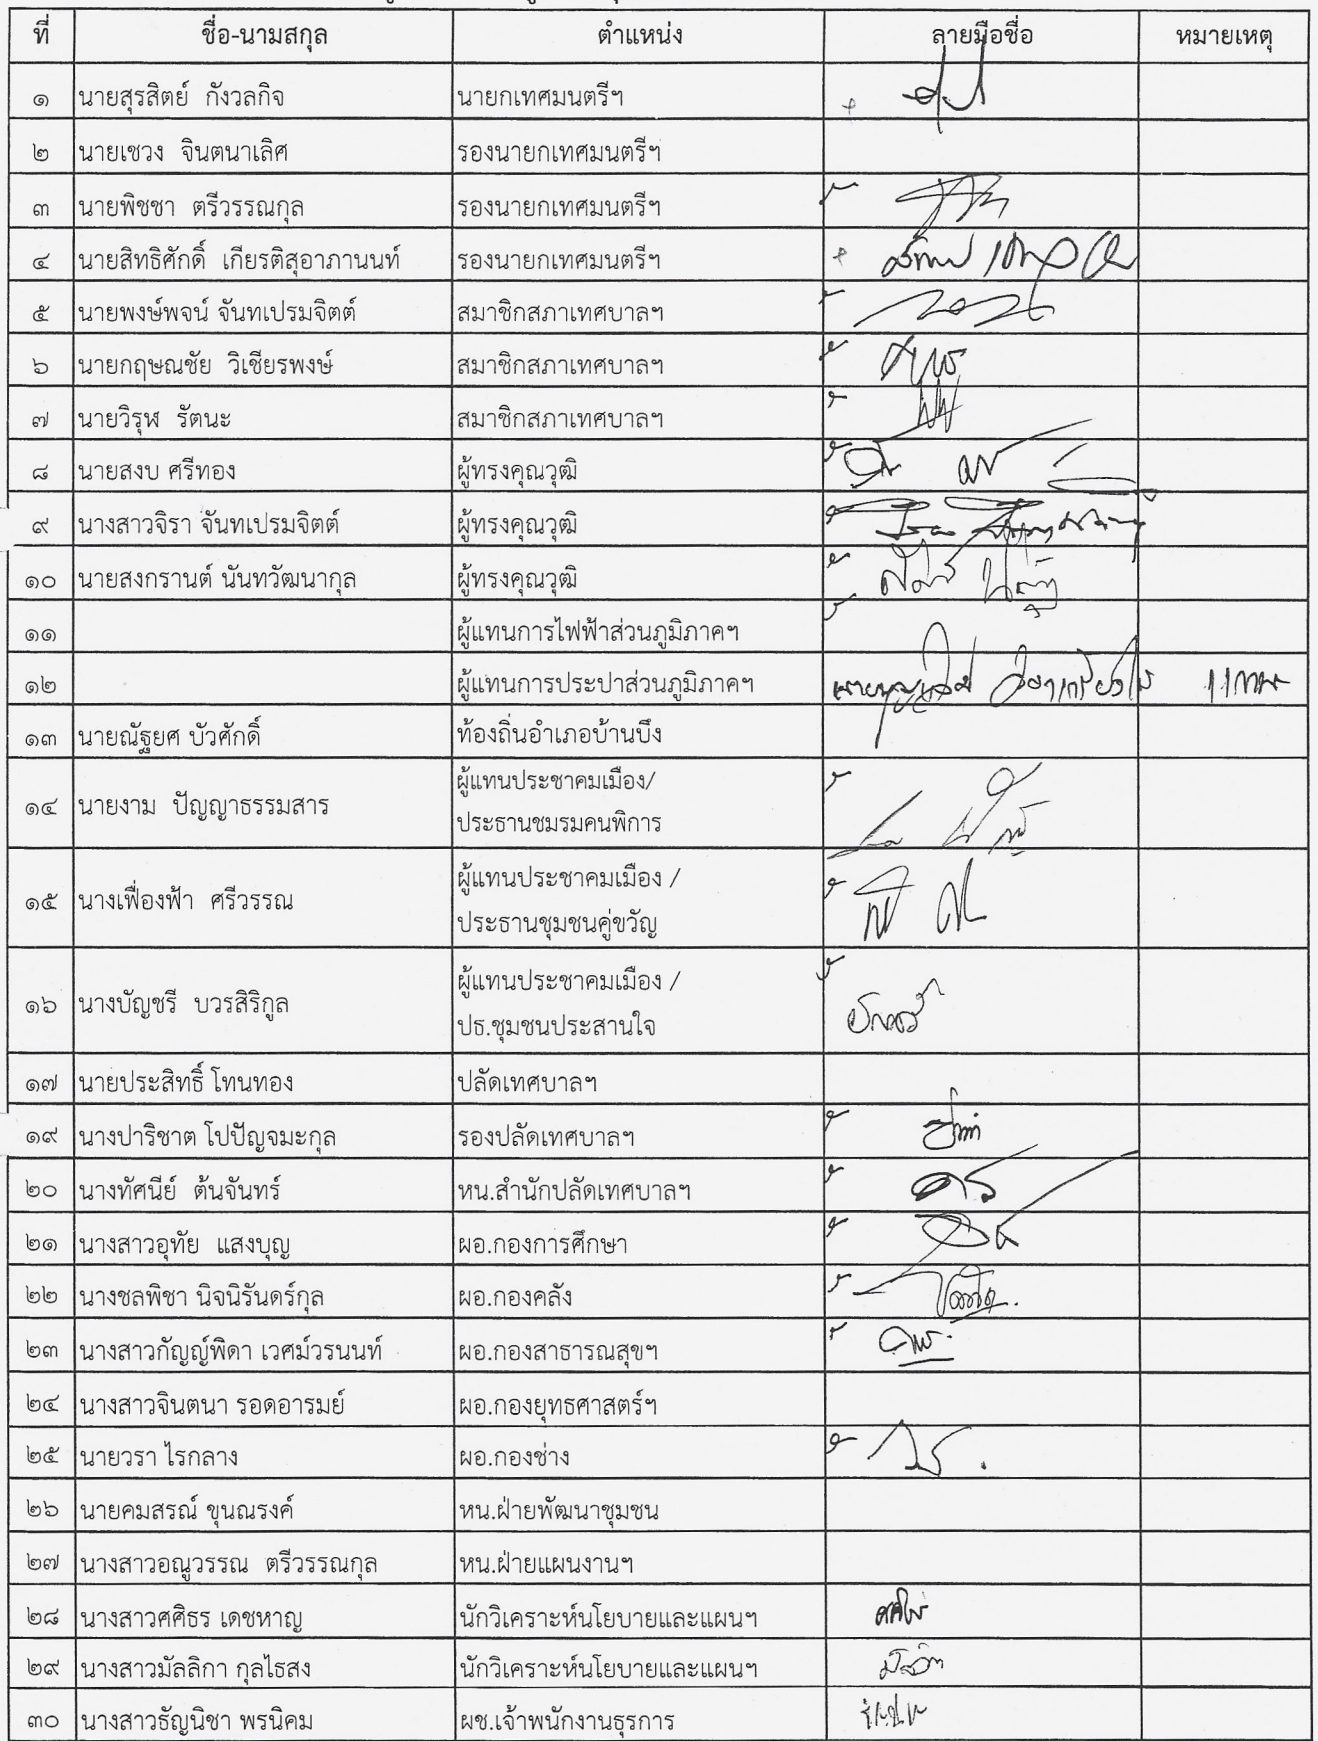 ที่ ชื่อ-นามสกุล ตำแหน่ง ลายมือชื่อ หมายเหตุ
๑ นายสุรสิตย์ กังวลกิจ นายกเทศมนตรีฯ
๒ นายเชวง จินตนาเลิศ รองนายกเทศมนตรีฯ
๓ นายพิชชา ตรีวรรณกุล รองนายกเทศมนตรีฯ
๔ นายสิทธิศักดิ์ เกียรติสุอาภานนท์ รองนายกเทศมนตรีฯ
๕ นายพงษ์พจน์ จันทเปรมจิตต์ สมาชิกสภาเทศบาลฯ
๖ นายกฤษณชัย วิเชียรพงษ์ สมาชิกสภาเทศบาลฯ
๗ นายวิรุฬ รัตนะ สมาชิกสภาเทศบาลฯ
๘ นายสงบ ศรีทอง ผู้ทรงคุณวุฒิ
๙ นางสาวจิรา จันทเปรมจิตต์ ผู้ทรงคุณวุฒิ
๑๐ นายสงกรานต์ นันทวัฒนากุล ผู้ทรงคุณวุฒิ
๑๑ ผู้แทนการไฟฟ้าส่วนภูมิภาคฯ
๑๒ ผู้แทนการประปาส่วนภูมิภาคฯ
๑๓ นายณัฐยศ บัวศักดิ์ ท้องถิ่นอำเภอบ้านบึง
๑๔ นายงาม ปัญญาธรรมสาร ผู้แทนประชาคมเมือง/
ประธานชมรมคนพิการ
๑๕ นางเฟื่องฟ้า ศรีวรรณ ผู้แทนประชาคมเมือง /
ประธานชุมชนคู่ขวัญ
๑๖ นางบัญชรี บวรสิริกูล ผู้แทนประชาคมเมือง /
ปธ.ชุมชนประสานใจ
๑๗ นายประสิทธิ์ โทนทอง ปลัดเทศบาลฯ
๑๙ นางปาริชาต โปปัญจมะกุล รองปลัดเทศบาลฯ
๒๐ นางทัศนีย์ ต้นจันทร์ หน.สำนักปลัดเทศบาลฯ
๒๑ นางสาวอุทัย แสงบุญ ผอ.กองการศึกษา
๒๒ นางชลพิชา นิจนิรันดร์กุล ผอ.กองคลัง
๒๓ นางสาวกัญญ์พิดา เวศม์วรนนท์ ผอ.กองสาธารณสุขฯ
๒๔ นางสาวจินตนา รอดอารมย์ ผอ.กองยุทธศาสตร์ฯ
๒๕ นายวรา ไรกลาง ผอ.กองช่าง
๒๖ นายคมสรณ์ ขุนณรงค์ หน.ฝ่ายพัฒนาชุมชน
๒๗ นางสาวอณูวรรณ ตรีวรรณกุล หน.ฝ่ายแผนงานฯ
๒๘ นางสาวศศิธร เดชหาญ นักวิเคราะห์นโยบายและแผนฯ
๒๙ นางสาวมัลลิกา กุลไธสง นักวิเคราะห์นโยบายและแผนฯ
๓๐ นางสาวธัญนิชา พรนิคม ผช.เจ้าพนักงานธุรการ